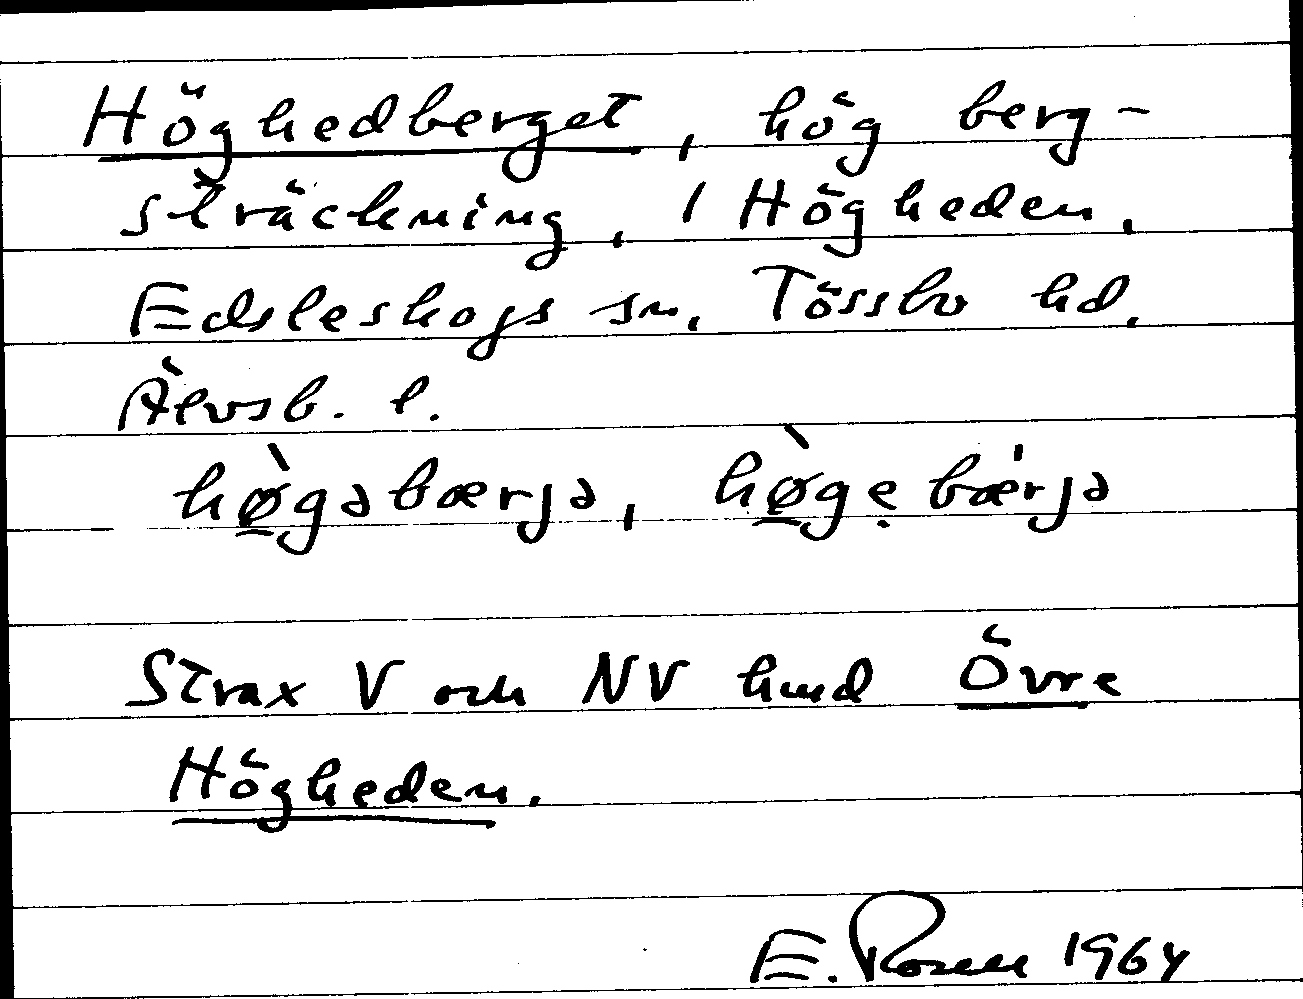 Höghedberget, hög berg-
sträckning, 1 Högheden,
Edsleskogs sn, Tössbo hd,
Älvsb. l.
hø̲̀gəbærjə, hø̲̀gẹbæ'rjə
Strax V och NV hmd Övre
Högheden.
E. Rosell 1964